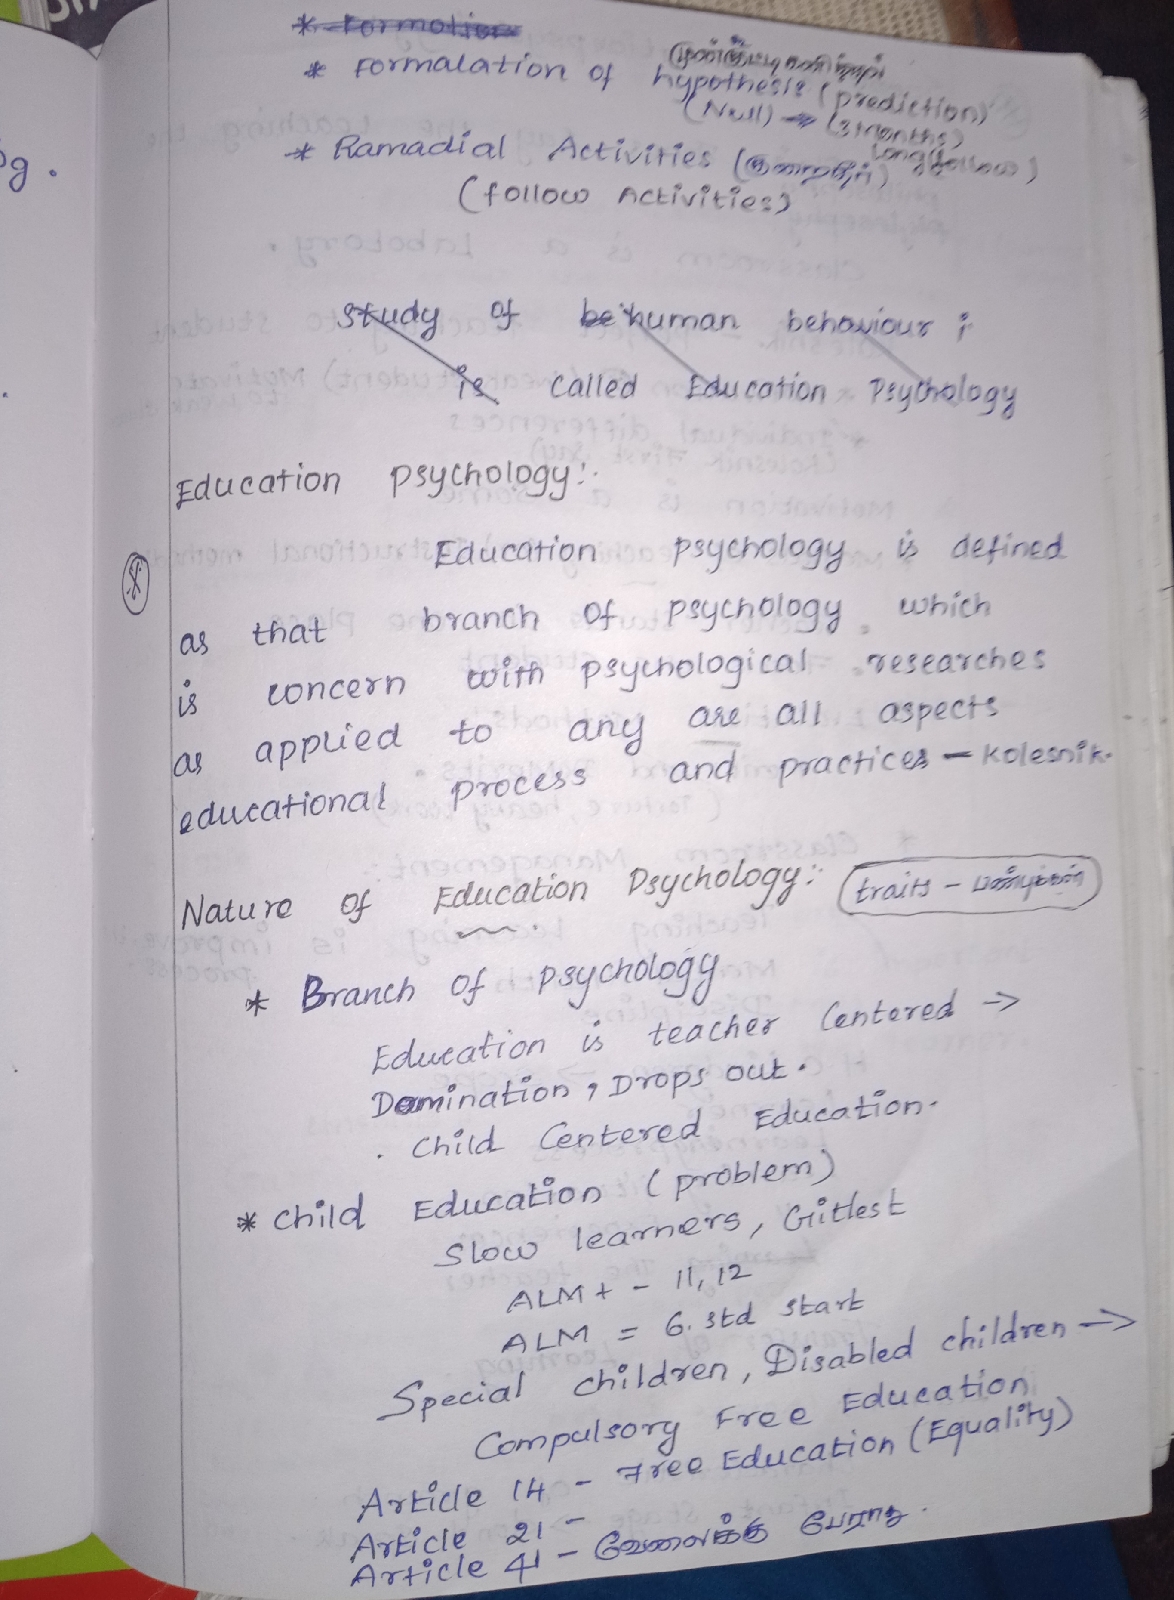 * Formation
* Formalation of hypothesis (prediction)
(Null) → (3 months)
long (follow)
* Ramadial Activities (குறைதீர்)
(follow Activities)
Study of be human behaviour ;
is called Education Psychology
Education psychology:.
Education psychology is defined
as that branch of psychology, which
is concern with psychological researches
as applied to any are all aspects
educational process and practices – Kolesnik.
Nature of Education Psychology: (traits – பண்புகள்)
* Branch of psychology
Education is teacher Centered →
Domination, Drops out.
. Child Centered Education.
* Child Education (problem)
Slow learners, Giftest
ALM + – 11, 12
ALM = 6. std start
Special children, Disabled children →
Compulsory Free Education
Article 14 – Free Education (Equality)
Article 21 –
Article 41 – வேலைக்கு போராது.